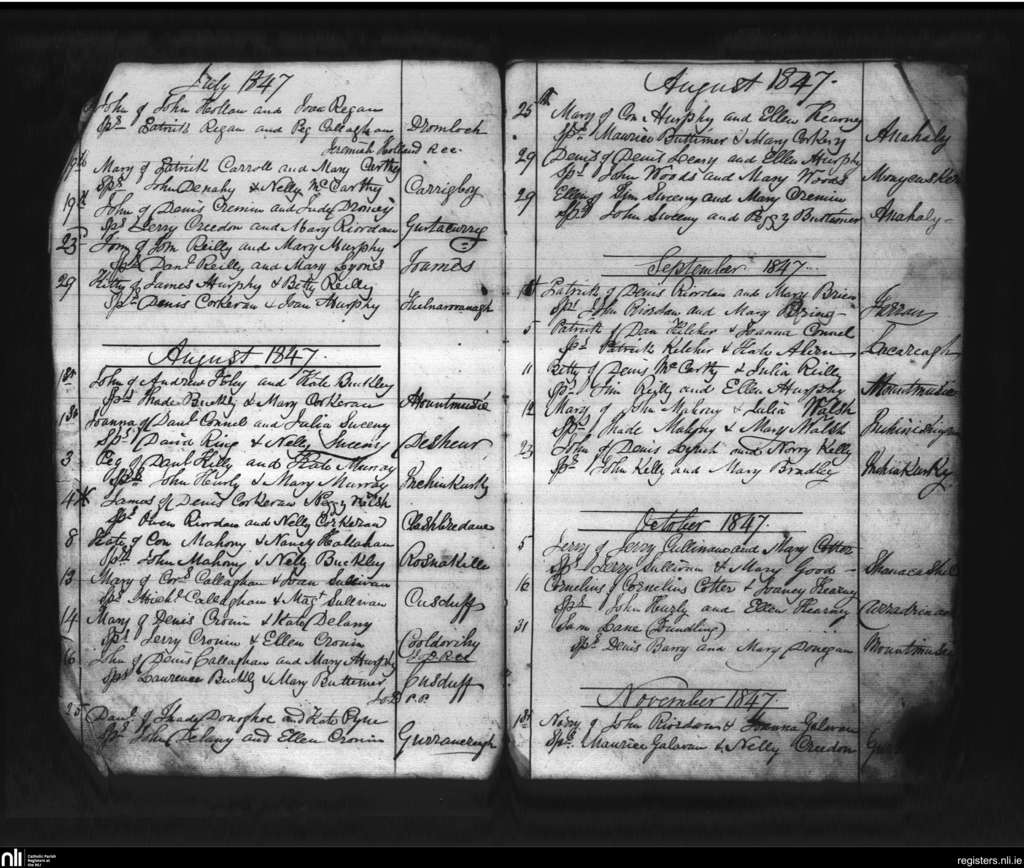 July 1847
John of John Hollan and Joan Regan
Sps Patrick Regan and Peg Callaghan Dromloch
Jeremiah Holland Rcc.
Mary of Patrick Carroll and Mary Carthy
Sps John Denahy & Nelly McCarthy Carrigboy
19th John of Denis Cremin and Judy Droney
Sps Jerry Creedon and Mary Riordan Gurtacurrig
23d Tom of Tom Reilly and Mary Murphy
Sps Danl Reilly and Mary Lyons Toames
29 Kitty of James Murphy & Betty Reilly
Sps Denis Corkeran & Joan Murphy
August 1847.
1st John of Andrew Foley and Kate Buckley
Sps Thade Buckley & Mary Corkeran Mountmusic
Joanna of Danl Connel and Julia Sweeny
Sps David Ring & Nelly Sweeny Deshear
3 Peg of Danl Kelly and Kate Murray
Sps John Hurly & Mary Murray Inchinkurky
4th James of Denis Corkeran & Peggy Walsh
Sps Owen Riordan and Nelly Corkeran Clashbredane
8 Kate of Con Mahony & Nancy Hallahan
Sps John Mahony & Nelly Buckley Rosnakilla
13 Mary of Cors Callaghan & Joan Sullivan
Sps Michl Callaghan & Magt Sullivan Cusduff
14 Mary of Denis Cronin & Kate Delany
Sps Jerry Cronin & Ellen Cronin Cooldorihy
16 John of Denis Callaghan and Mary Murphy
Sps Laurence Buckly & Mary Buttimer Cusduff
P.P.
25 Danl of Thade Donoghoe and Kate Pyne
Sps John Delany and Ellen Cronin Gurranereigh
August 1847.
25th Mary of Con Murphy and Ellen Kearney
Sps Maurice Buttimer & Mary Corkery Anahaly
29 Denis of Denis Leary and Ellen Murphy
Sps John Woods and Mary Woods
29 Ellen of Tim Sweeny and Mary Cremin
Sps John Sweeny and Peggy Buttimer Anahaly
September 1847.
1st Patrick of Denis Riordan and Mary Brien
Sps John Riordan and Mary Farran
5 Patrick of Dan Kelcher & Joanna Connel
Sps Patrick Kelcher & Kate Ahern
11 Betty of Denis McCarthy & Julia Reilly
Sps Tim Reilly and Ellen Murphy Mountmusic
12 Mary of John Mahony & Julia Walsh
Sps Thade Mahony & Mary Walsh
23 John of Denis Lynch and Norry Kelly
Sps John Kelly and Mary Bradley Inchinkurky
October 1847.
5 Jerry of Jerry Cullinane and Mary Cotter
Sps Jerry Sullivan & Mary Good
16 Cornelius of Cornelius Cotter & Joaney Kearney
Sps John Hurly and Ellen Kearney
31 Sam Lane (Fundling)
Sps Denis Barry and Mary Donegan Mountmusic
November 1847.
1st Nory of John Riordan & Joanna Galavan
Sps Maurice Galavan & Nelly Creedon
nli
Catholic Parish
Registers at
the NLI
registers.nli.ie